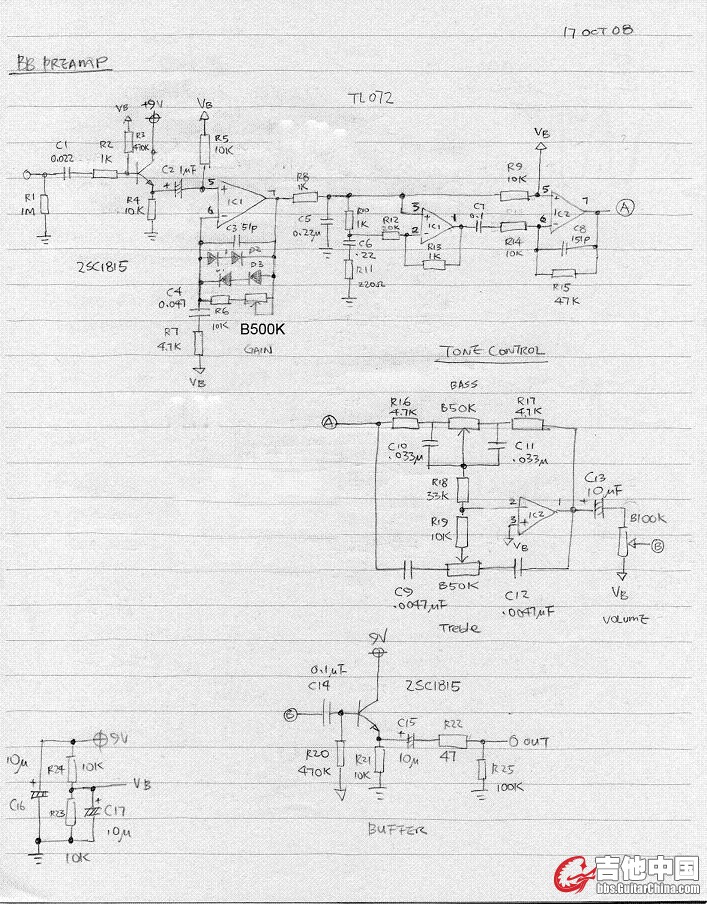 17 OCT 08
BB PREAMP
TL072
VB
+9V
VB
VB
R3
470K
R5
10K
C1
0.022
R2
1K
C2 1µF
R1
1M
R4
10K
5
6
7
+
-
IC1
C3 51p
D2
D3
C4
0.047
R6
10K
B500K
GAIN
R7
4.7K
VB
2SC1815
R8
1K
C5
0.22µ
R10
1K
C6
.22
R11
220Ω
R12
3
2
1
+
-
IC1
R13
1K
C7
0.1
R14
10K
R9
10K
5
6
7
+
-
IC2
A
C8
151p
R15
47K
TONE CONTROL
BASS
A
R16
4.7K
B50K
R17
4.7K
C10
.033µ
C11
.033µ
R18
33K
R19
10K
2
3
1
-
+
IC2
VB
C13
+
10µF
B100K
B
VB
VOLUME
B50K
C9
.0047µF
C12
.0047µF
Treble
9V
0.1µF
C14
2SC1815
B
C15
+
10µ
R22
47
OUT
R20
470K
R21
10K
R25
100K
BUFFER
9V
10µ
+
C16
R24
10K
VB
R23
+
C17
10µ
10K
吉他中国
bbs.GuitarChina.com